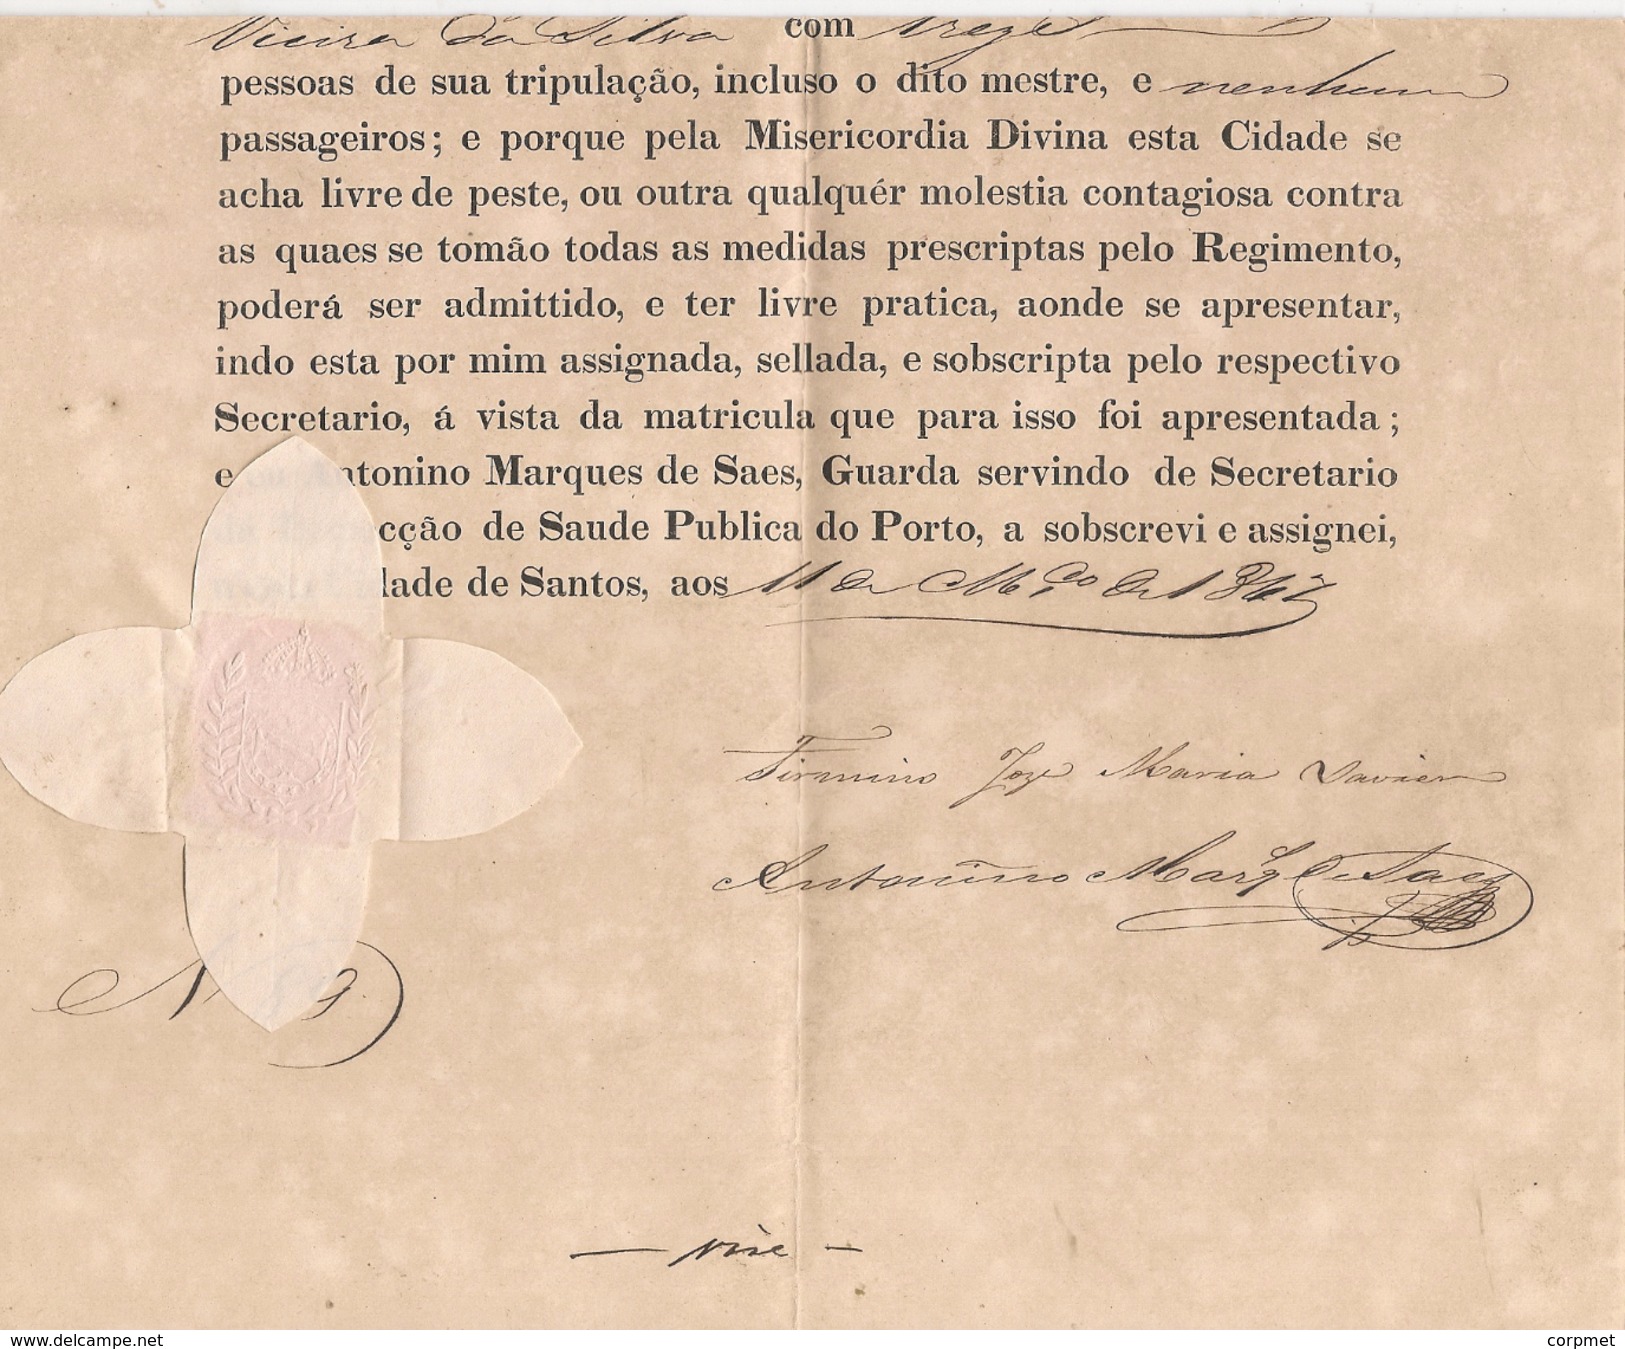 Vieira da Silva com treze
pessoas de sua tripulação, incluso o dito mestre, e nenhum
passageiros; e porque pela Misericordia Divina esta Cidade se
acha livre de peste, ou outra qualquér molestia contagiosa contra
as quaes se tomão todas as medidas prescriptas pelo Regimento,
poderá ser admittido, e ter livre pratica, aonde se apresentar,
indo esta por mim assignada, sellada, e sobscripta pelo respectivo
Secretario, á vista da matricula que para isso foi apresentada;
e eu Antonino Marques de Saes, Guarda servindo de Secretario
cção de Saude Publica do Porto, a sobscrevi e assignei,
dade de Santos, aos 11 de Mço de 1867
Firmino Joze Maria Xavier
Antonino Marq de Saes
N 9
— vire —
www.delcampe.net
corpmet